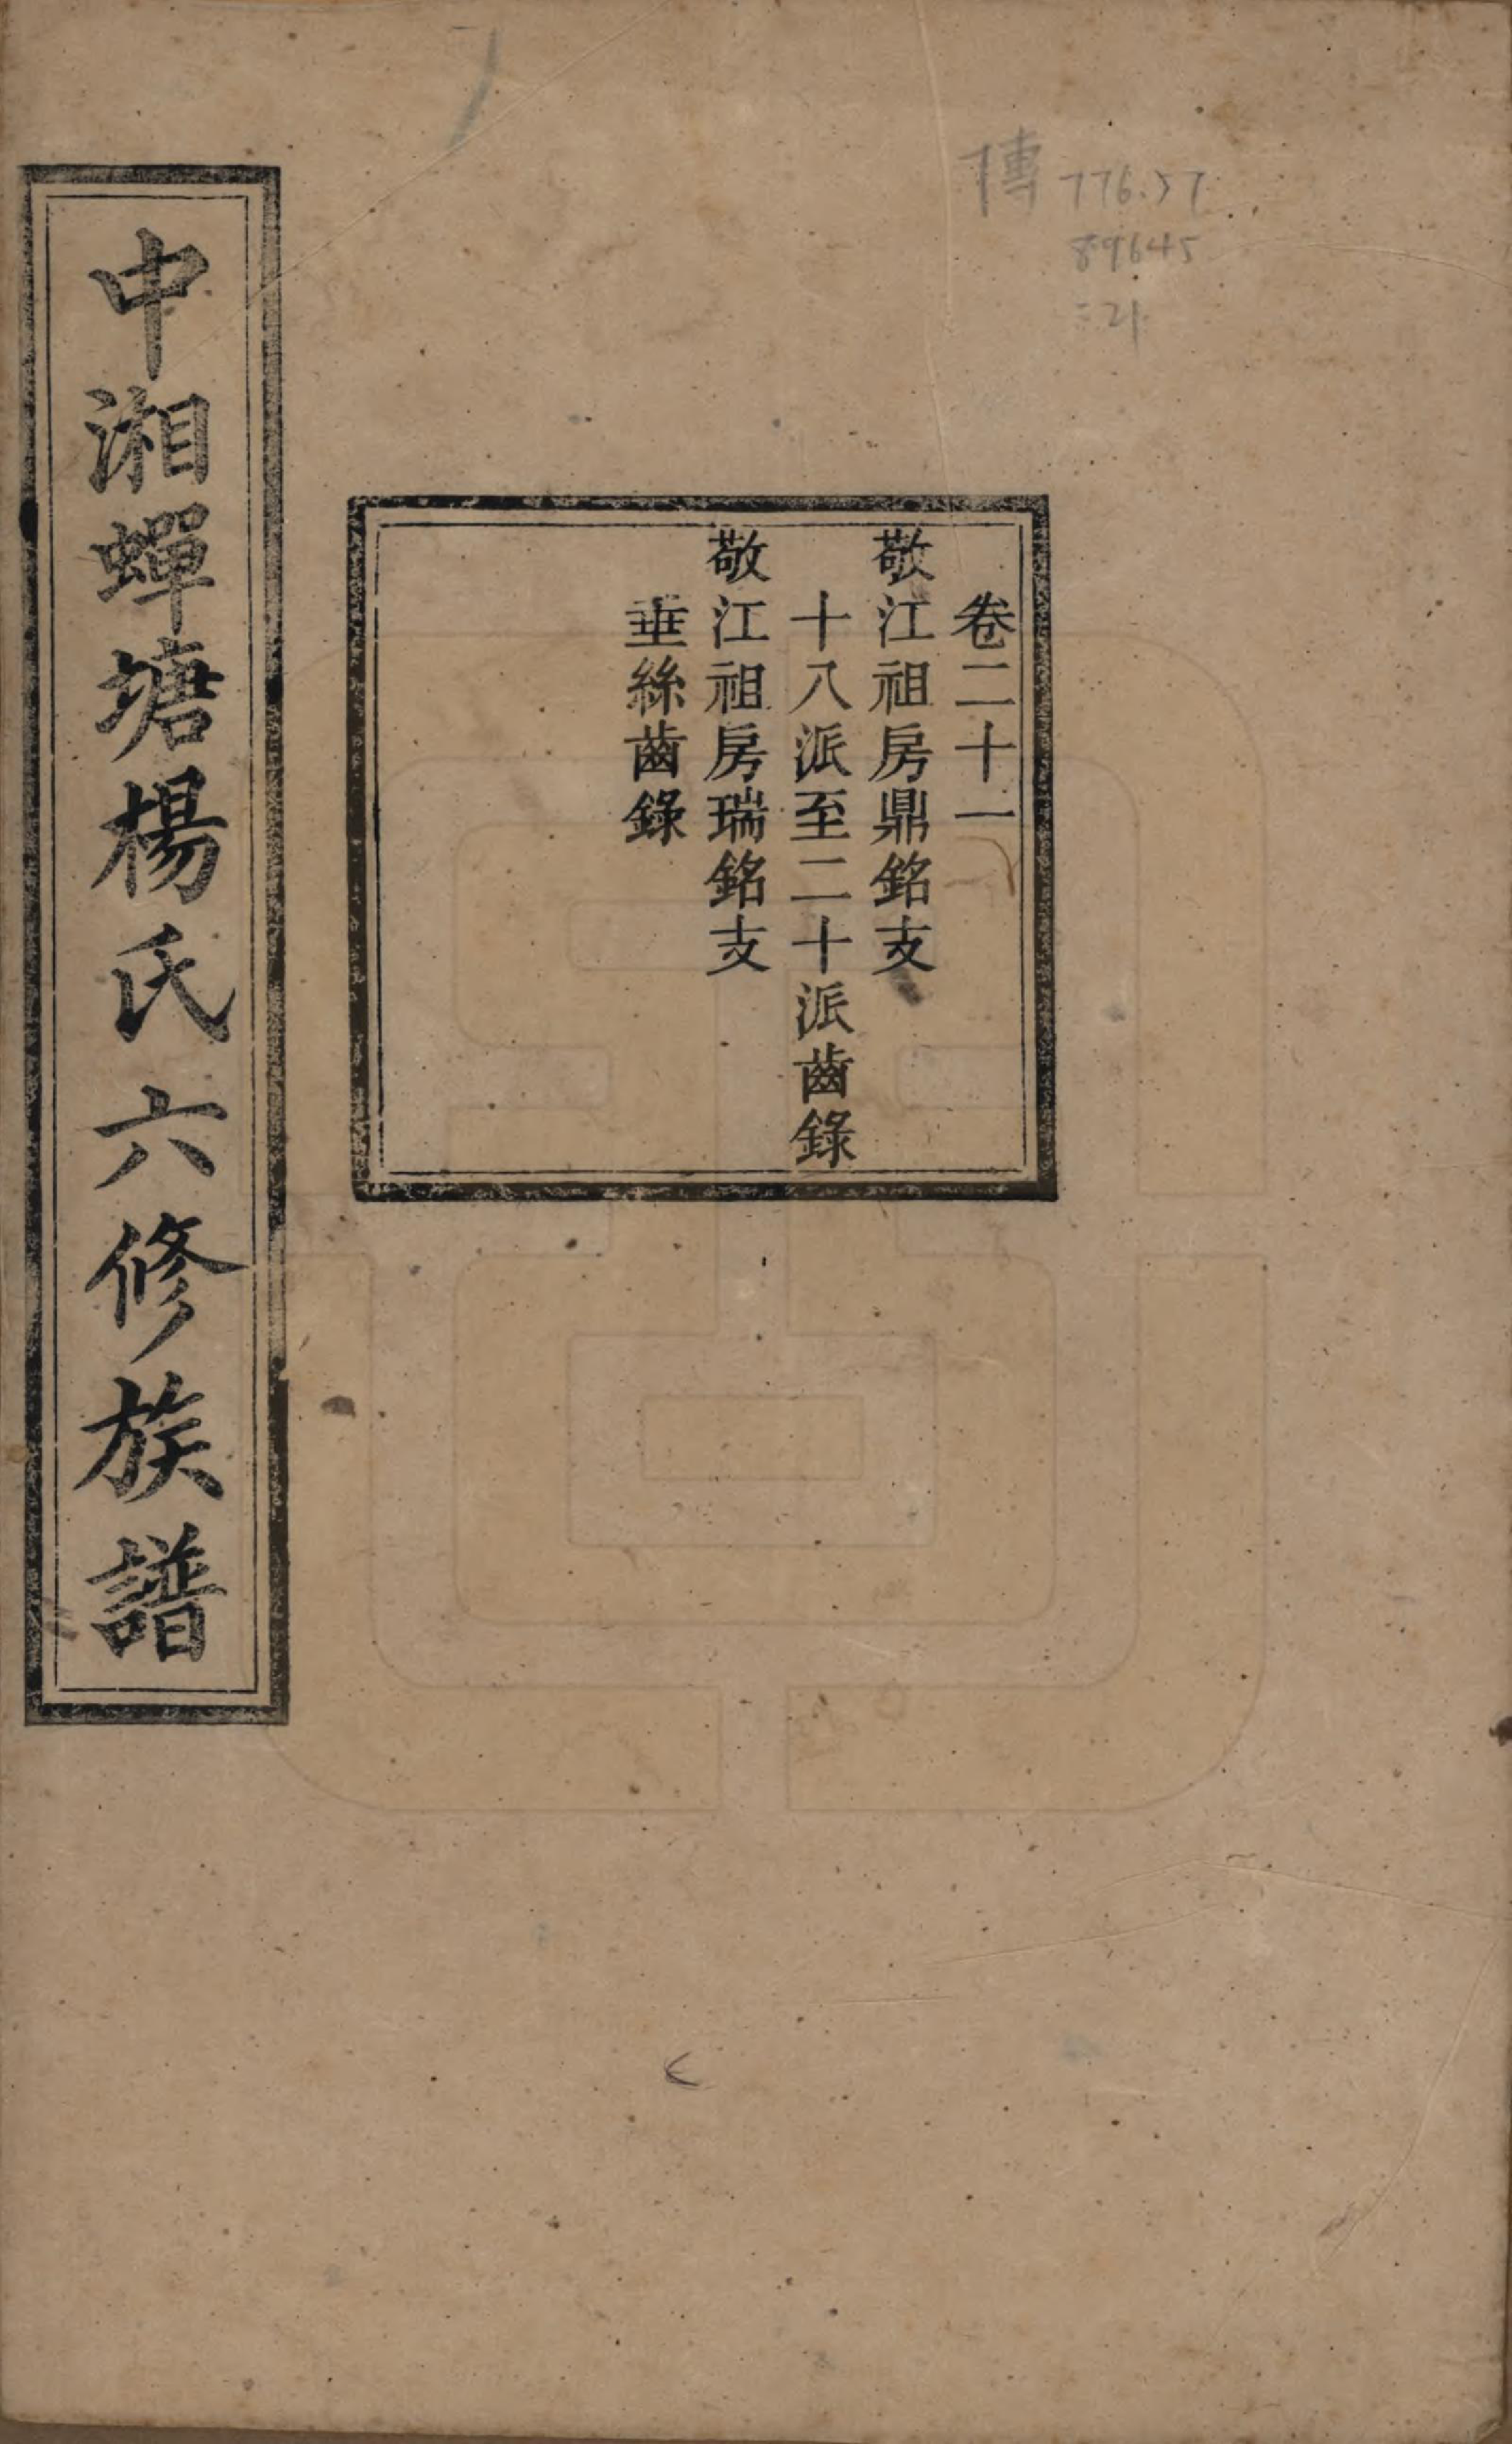 傳 776.57
89645
:21
卷二十一
敬江祖房鼎銘支
十八派至二十派齒錄
敬江祖房瑞銘支
垂絲齒錄
中湘蟬塘楊氏六修族譜